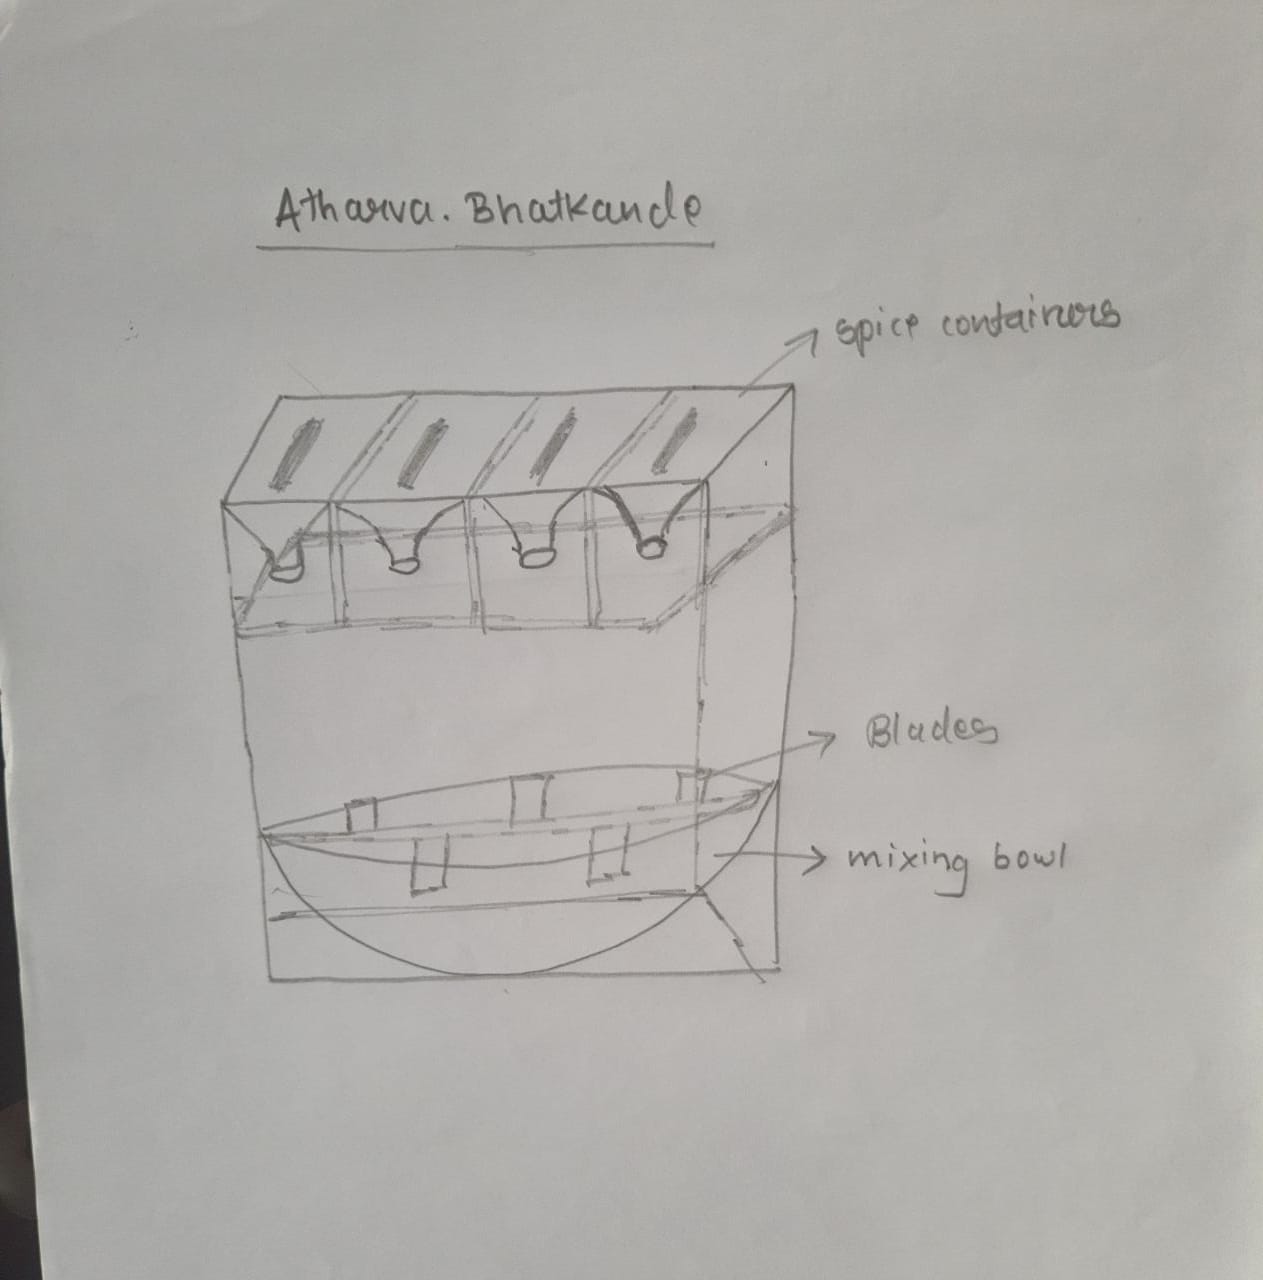 Atharva. Bhatkande
spice containers
Blades
mixing bowl